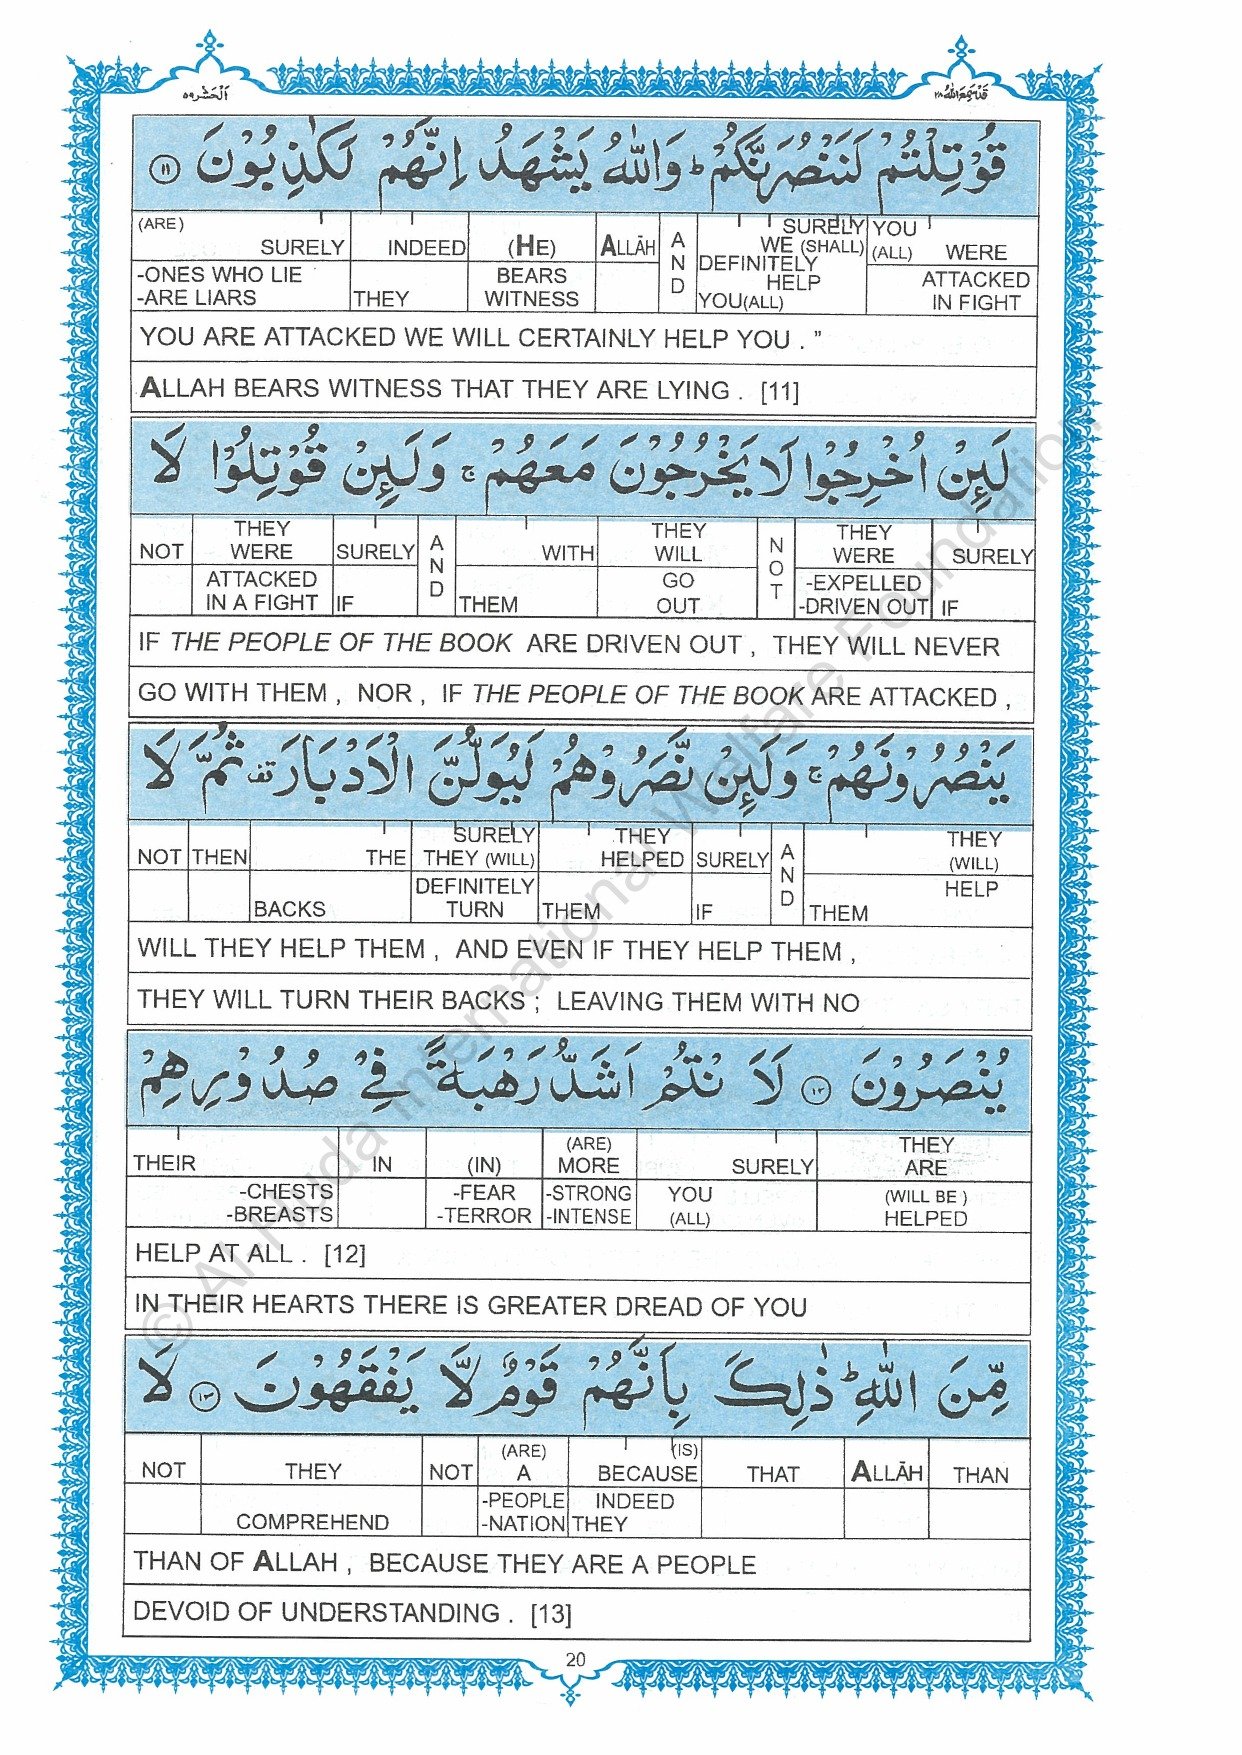 اَلْحَشْر ٥٩
قَدْ سَمِعَ اللّٰهُ ٢٨
قُوْتِلْتُمْ لَنَنْصُرَنَّكُمْ ؕ وَاللّٰهُ يَشْهَدُ اِنَّهُمْ لَكٰذِبُوْنَ ١١
(ARE) SURELY INDEED (HE) ALLĀH AND SURELY WE (SHALL) YOU (ALL) WERE
-ONES WHO LIE -ARE LIARS THEY BEARS WITNESS DEFINITELY HELP YOU(ALL) ATTACKED IN FIGHT
YOU ARE ATTACKED WE WILL CERTAINLY HELP YOU . ”
ALLAH BEARS WITNESS THAT THEY ARE LYING . [11]
لَئِنْ اُخْرِجُوْا لَا يَخْرُجُوْنَ مَعَهُمْ ۚ وَلَئِنْ قُوْتِلُوْا لَا
NOT THEY WERE SURELY AND WITH THEY WILL NOT THEY WERE SURELY
ATTACKED IN A FIGHT IF THEM GO OUT -EXPELLED -DRIVEN OUT IF
IF THE PEOPLE OF THE BOOK ARE DRIVEN OUT , THEY WILL NEVER
GO WITH THEM , NOR , IF THE PEOPLE OF THE BOOK ARE ATTACKED ,
يَنْصُرُوْنَهُمْ ۚ وَلَئِنْ نَّصَرُوْهُمْ لَيُوَلُّنَّ الْاَدْبَارَ قف ثُمَّ لَا
NOT THEN THE SURELY THEY (WILL) THEY HELPED SURELY AND THEY (WILL)
BACKS DEFINITELY TURN THEM IF THEM HELP
WILL THEY HELP THEM , AND EVEN IF THEY HELP THEM ,
THEY WILL TURN THEIR BACKS ; LEAVING THEM WITH NO
يُنْصَرُوْنَ ١٢ لَاَ نْتُمْ اَشَدُّ رَهْبَةً فِيْ صُدُوْرِهِمْ
THEIR IN (IN) (ARE) MORE SURELY THEY ARE
-CHESTS -BREASTS -FEAR -TERROR -STRONG -INTENSE YOU (ALL) (WILL BE ) HELPED
HELP AT ALL . [12]
IN THEIR HEARTS THERE IS GREATER DREAD OF YOU
مِّنَ اللّٰهِ ؕ ذٰلِكَ بِاَنَّهُمْ قَوْمٌ لَّا يَفْقَهُوْنَ ١٣ لَا
NOT THEY NOT (ARE) A (IS) BECAUSE THAT ALLĀH THAN
COMPREHEND -PEOPLE -NATION INDEED THEY
THAN OF ALLAH , BECAUSE THEY ARE A PEOPLE
DEVOID OF UNDERSTANDING . [13]
20
© Al-Huda International Welfare Foundation